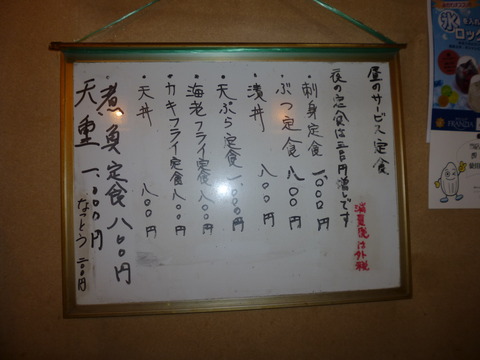 昼のサービス定食
夜の定食は三百円増しです
消費税は外税
・刺身定食 一、〇〇〇円
・ぶつ定食 八〇〇円
・漬丼 八〇〇円
・天ぷら定食 一、〇〇〇円
・海老フライ定食 八〇〇円
・カキフライ定食 八〇〇円
・天丼 八〇〇円
煮魚定食 八〇〇円
天重 一、〇〇〇円
なっとう 一〇〇円
氷
を入れ
ロック
FRANZIA